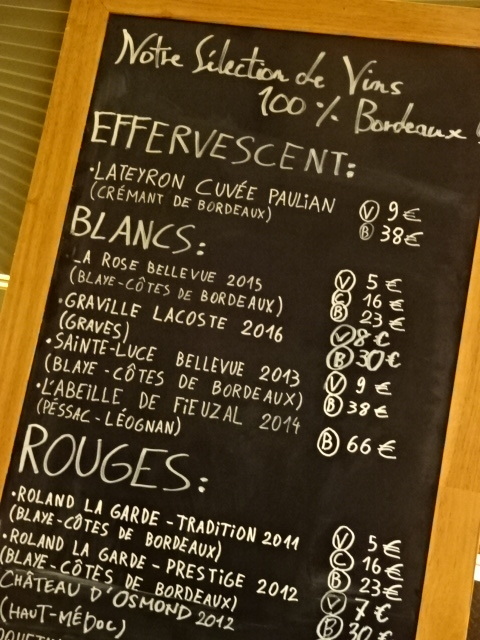 Notre Sélection de Vins
100 % Bordeaux !
EFFERVESCENT:
·LATEYRON CUVÉE PAULIAN Ⓥ 9€
(CRÉMANT DE BORDEAUX) Ⓑ 38€
BLANCS:
LA ROSE BELLEVUE 2015 Ⓥ 5€
(BLAYE-CÔTES DE BORDEAUX) Ⓒ 16€
Ⓑ 23€
·GRAVILLE LACOSTE 2016 Ⓥ 8€
(GRAVES) Ⓑ 30€
·SAINTE-LUCE BELLEVUE 2013 Ⓥ 9€
(BLAYE-CÔTES DE BORDEAUX) Ⓑ 38€
·L'ABEILLE DE FIEUZAL 2014 Ⓑ 66€
(PESSAC-LÉOGNAN)
ROUGES:
·ROLAND LA GARDE-TRADITION 2011 Ⓥ 5€
(BLAYE-CÔTES DE BORDEAUX) Ⓒ 16€
Ⓑ 23€
·ROLAND LA GARDE-PRESTIGE 2012 Ⓥ 7€
(BLAYE-CÔTES DE BORDEAUX) Ⓑ 30€
CHÂTEAU D'OSMOND 2012
(HAUT-MÉDOC)